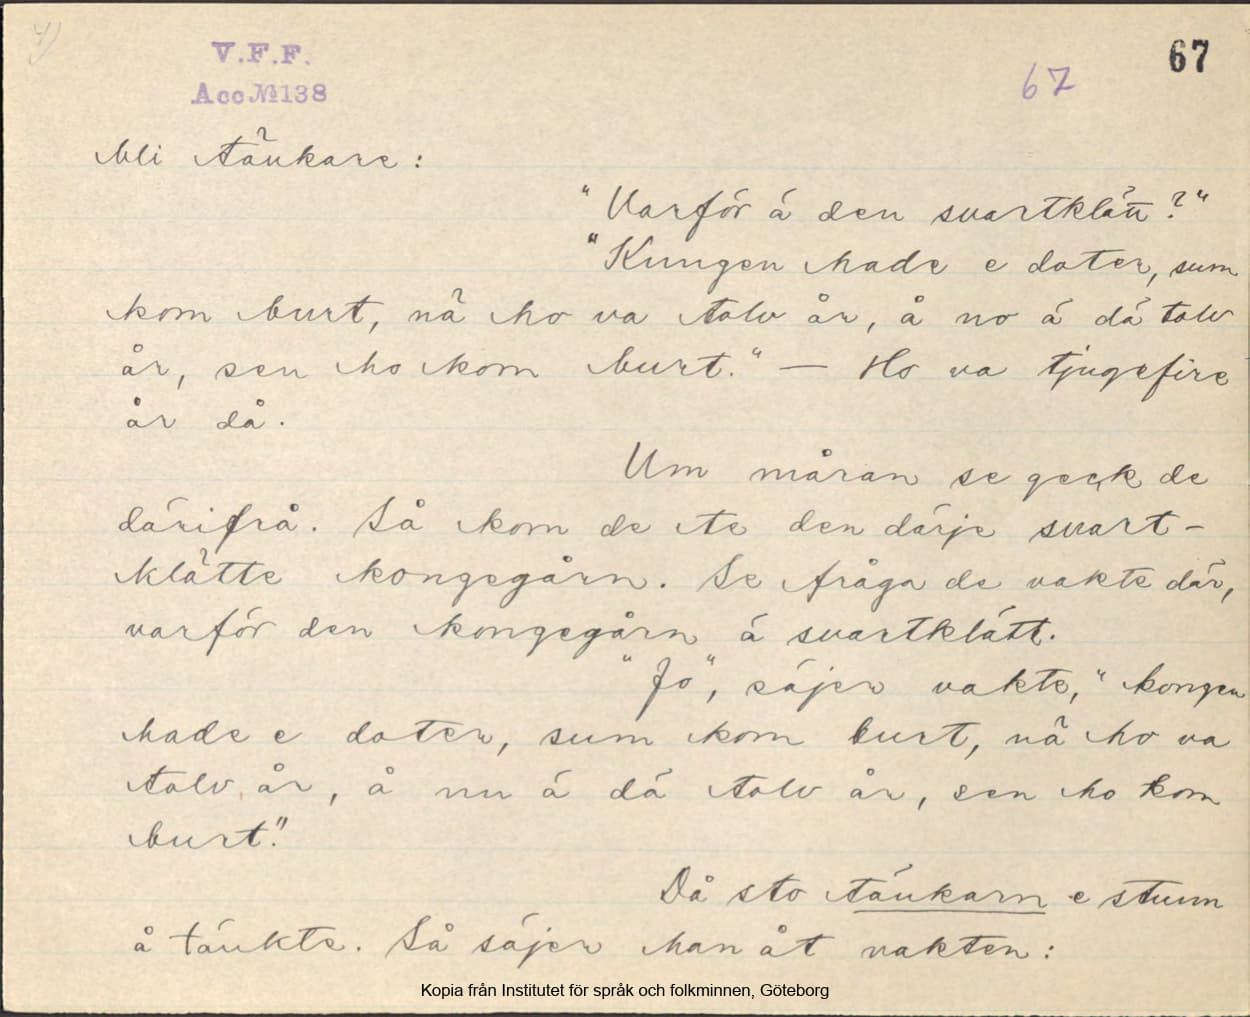 7)
V.F.F.
Acc № 138
67
67
Mi tänkare:
"Varför á den svartklätt?"
"Kungen hade e doter, sum
kom burt, nä ho va talv år, å no á dá talv
år, sen ho kom burt." — Ho va tjugefire
år då.
Um måran se geck de
därifrå. Så kom de te den därje svart-
klätte kongegårn. Se fråga de vakte där,
varför den kongegårn á svartklätt.
"Jo", säjer vakte, "kongen
hade e doter, sum kom burt, nä ho va
talv år, å nu á dá talv år, sen ho kom
burt."
Då sto tánkarn e stunn
å tänkte. Så säjer han åt vakten:
Kopia från Institutet för språk och folkminnen, Göteborg